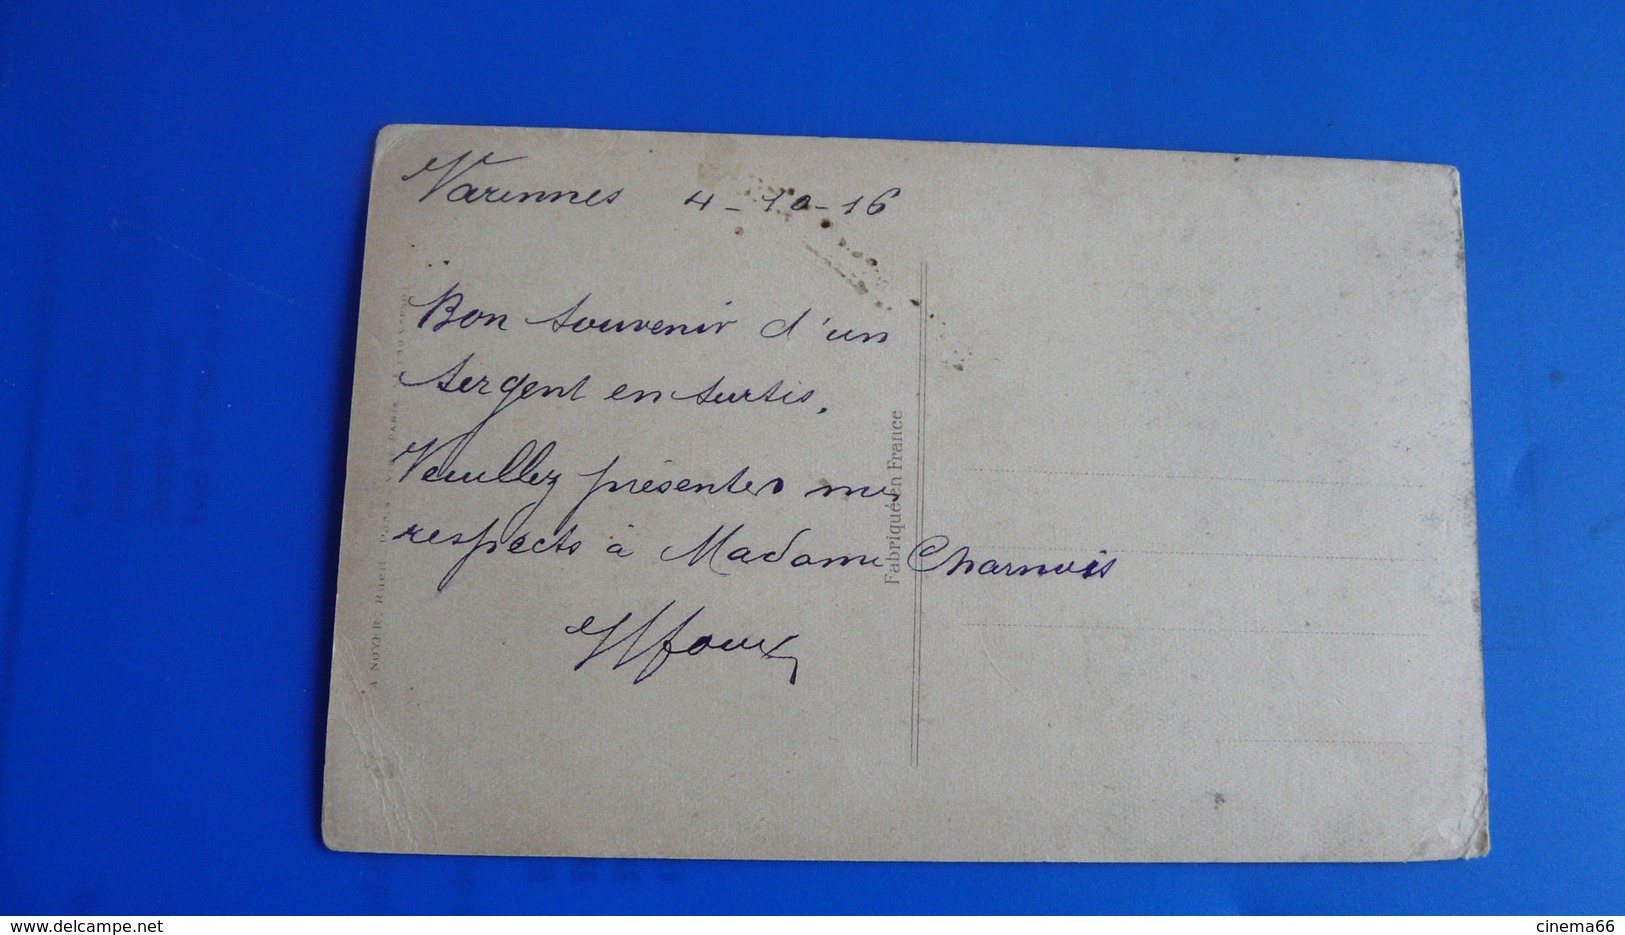 Varennes 4-10-16
Bon souvenir d'un
sergent en sursis.
Veuillez présenter mes
respects à Madame Charnois
A NOYER. PARIS
Fabriqué en France
cinema66